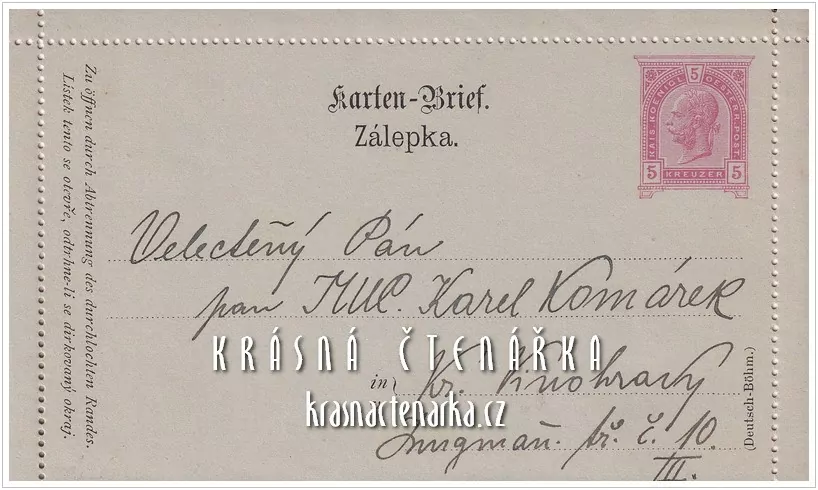 Karten-Brief.
Zálepka.
5
KAIS. KOENIGL. OESTERR. POST
5 KREUZER 5
Velectěný Pán
pan MUC. Karel Komárek
KRÁSNÁ ČTENÁŘKA
in
Kr. Vinohrady
krasnactenarka.cz
tř. č. 10.
III.
Zu öffnen durch Abtrennung des durchlochten Randes.
Lístek tento se otevře, odtrhne-li se dírkovaný okraj.
(Deutsch-Böhm.)